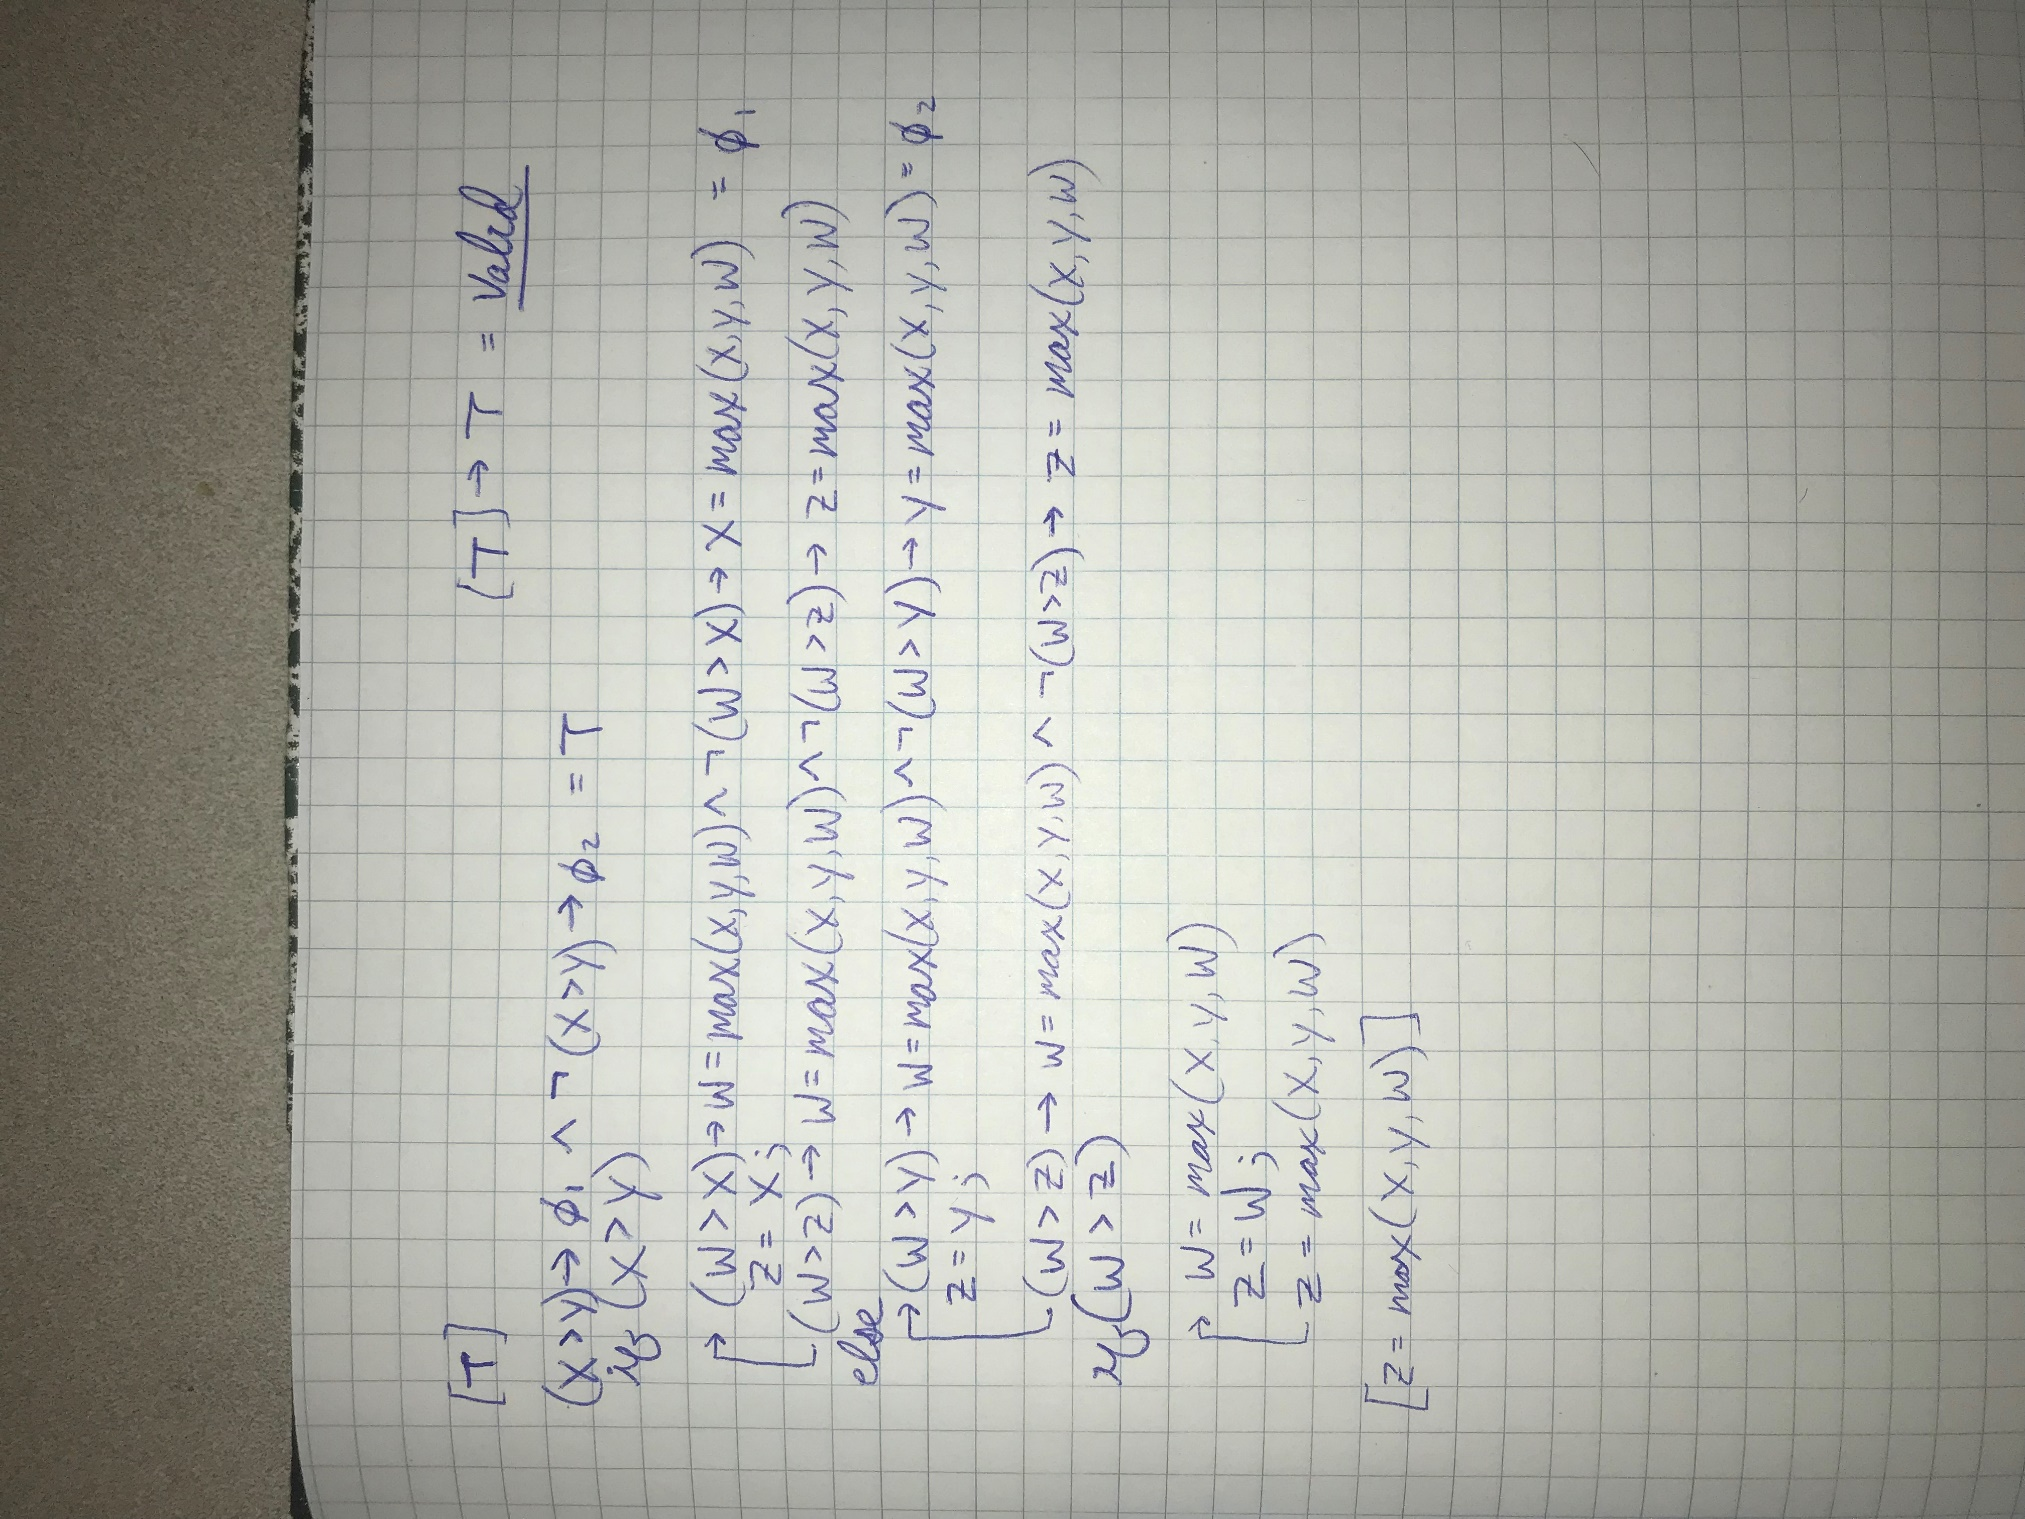 [T] [T] → T = Valid
(X>Y)→ϕ₁ ∧ ¬(X>Y)→ϕ₂ = T
if (X>Y)
(W>X)→W=max(X,Y,W)∧¬(W>X)→X=max(X,Y,W) = ϕ₁
Z=X;
(W>Z)→W=max(X,Y,W)∧¬(W>Z)→Z=max(X,Y,W)
else
(W>Y)→W=max(X,Y,W)∧¬(W>Y)→Y=max(X,Y,W)=ϕ₂
Z=Y;
(W>Z)→W=max(X,Y,W)∧¬(W>Z)→Z=max(X,Y,W)
if(W>Z)
W=max(X,Y,W)
Z=W;
Z=max(X,Y,W)
[Z=max(X,Y,W)]